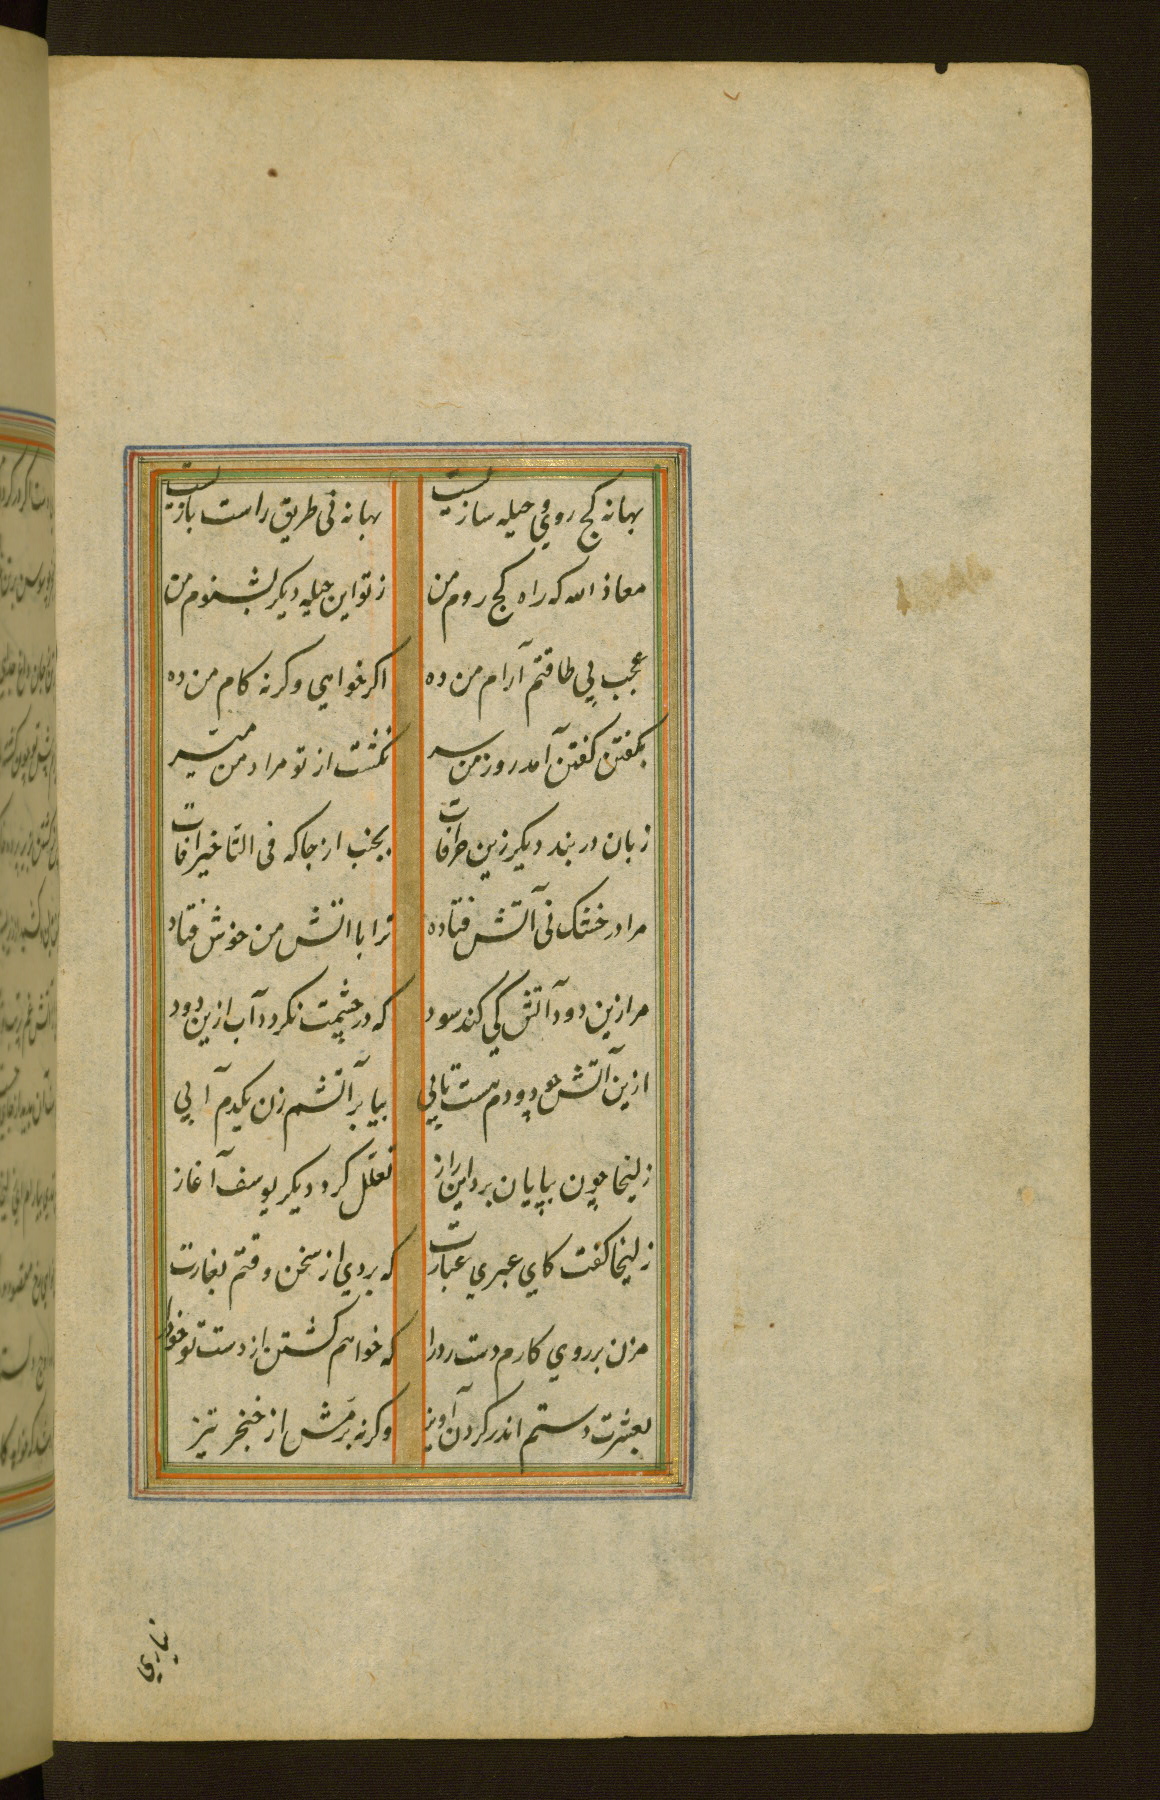 بهانه کج روی و حیله سازیست بهانه نی طریق راست بازیست
معاذ الله که راه کج روم من ز تو این حیله دیکر بشنوم من
عجب بی طاقتم آرام من ده اکر خواهی وکرنه کام من ده
بکفتن کفتن آمد روز من بسر نکشت از تو مراد من میسر
زبان در بند دیکر زین خرافات بجنب از جا که فی التاخیر افات
مرا در خشک نی آتش فتاده ترا با اتش من خوش فتاده
مرا زین دود آتش کی کند سود که در چشمت نکردد آب ازین دود
ازین آتش چو دودم هست تابی بیا بر آتشم زن یکدم آبی
زلیخا چون بپایان برد این راز تعلل کرد دیکر یوسف آغاز
زلیخا کفت کای عبری عبارت که بردی از سخن وقتم بغارت
مزن بر روی کارم دست رد را که خواهم کشتن از دست تو خود را
بعشرت دستم اندر کردن آویز وکرنه برمش از خنجر تیز
نیاری